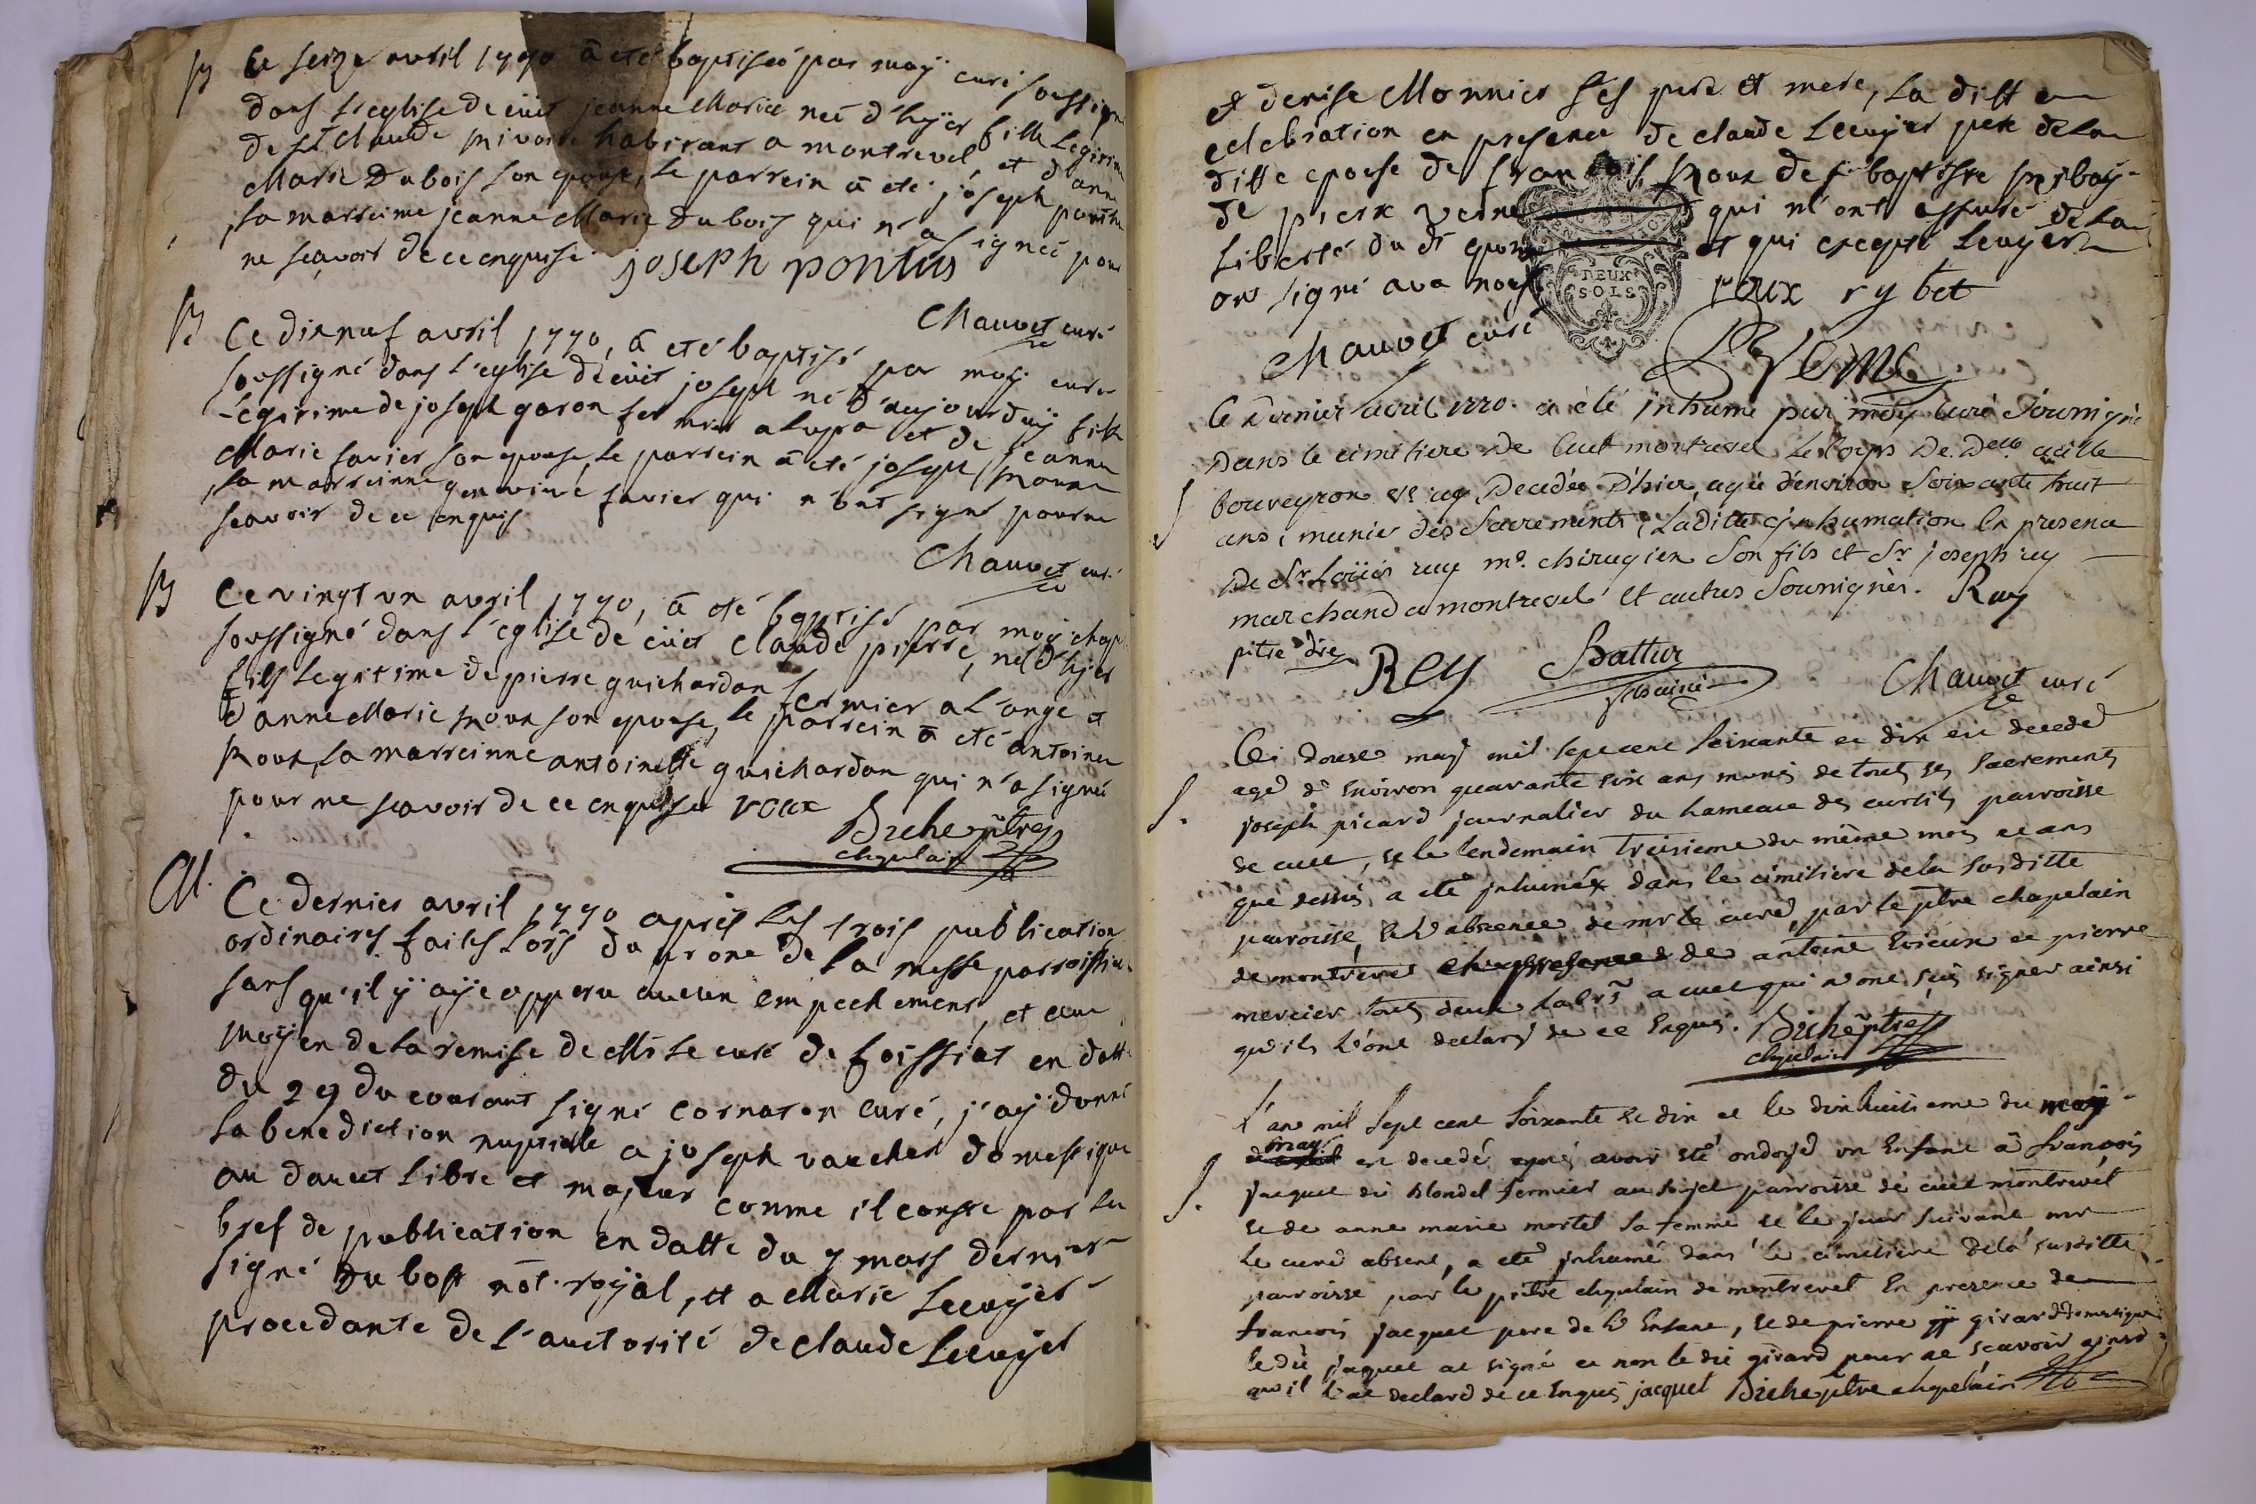 B
Ce seize avril 1770 a été baptisée par moÿ curé soussigné
dans l'eglise de cuët jeanne Marie neé d'hÿer fille legitim
de st Claude pivoire habitant a montrevel et d'anne
Marie Dubois son epouse, le parrein a été joseph pontus
la marreinne jeanne Marie Dubois qui n'a signeé pour
ne sçavoir de ce enquise. joseph pontus
Chauvet curé
B
Ce dixneuf avril 1770, a été baptisé par moÿ curé
soussigné dans l'eglise de cüet joseph né d'aujourduÿ fils
legitime de joseph goron fermier a et de jeanne
Marie favier son epouse, le parrein a eté joseph
la marreinne genevieve favier qui n'ont signé pour ne
scavoir de ce enquis
Chauvet curé
B
Ce vingt un avril 1770, a eté baptisé par moÿ chap
soussigné dans l'eglise de cüet Claude pierre, né d'hÿer
fils legitime de pierre guichardon fermier a l'ange et
d'anne Marie Roux son epouse, le parrein a eté antoine
Roux, la marreinne antoinette guichardon qui n'a signé
pour ne scavoir de ce enquise roux
Biche ptre
chapelain
M.
Ce dernier avril 1770 aprés les trois publication
ordinaires faites lors du prone de la messe parroissiale
sans qu'il ÿ aÿe apperu aucun empechement, et au
moÿen de la remise de Mr le curé de foissiat en datte
du 29 du courant signé cornaton curé, j'aÿ donné
la benediction nuptialle a joseph vaucher domestique
au dauet libre et majeur comme il conste par le
bref de publication en datte du 7 mars dernier
signé Dubost not. roÿal, et a Marie Lecuÿer
procedante de l'auctorité de claude Lecuÿer
et denise Monnier ses pere et mere, la ditte
celebration en presence de claude Lecuÿer pere de la
ditte epouse de françois Roux de j. baptiste ribaÿ
de pierre verne qui m'ont assuré de la
liberté du dt epoux et qui excepté Lecuÿer
ont signé avec nous roux rybet
Chauvet curé
Verne
S
Ce Dernier avril 1770. a été inhumé par moy curé soussigné
Dans le cimitiere de Cuet montrevel le Corps De Delle
bouveyron Ve rey Decedée D'hier, agée d'environ Soixante huit
ans, munie des Sacrements, Laditte inhumation en presence
De Sr Loüis rey me. chirugien Son fils et Sr joseph rey
marchand a montrevel et autres Soussignés. Rey
REY Battur
Chauvet curé
S.
Ce douse may mil sept cent soixante et dix est decedé
agé d'environ quarante six ans muni de tous ses sacrements
joseph picard journalier du hameau des curtils parroisse
de cuet, et le lendemain treisieme du même mois et ans
que dessus a eté inhumé dans le cimitiere de la susditte
paroisse, en l'absence de mr le curé, par le ptre chapelain
de montrevel de antoine et pierre
mercier tous deux habts a cuet qui n'ont sçus signer ainsi
qu'ils l'ont declarés de ce Enquis. Biche ptre
chapelain
S.
L'an mil sept cent soixante et dix et le dixhuitieme du may
may est decedé aprés avoir eté ondoyé un Enfant a françois
jacquet dit blondel fermier au parroisse de cuet montrevel
et de anne marie mortel sa femme et le jour suivant mr
le curé absent, a eté inhumé dans le cimitiere de la susditte
parroisse par le prêtre chapelain de montrevel En presence de
francois jacquet pere de l'Enfant, et de pierre girard domestique
le dit jacquet at signé et non le dit girard pour ne scavoir ainsi
qu'il l'at declaré de ce Enquis jacquet Biche ptre chapelain
DEUX
SOLS